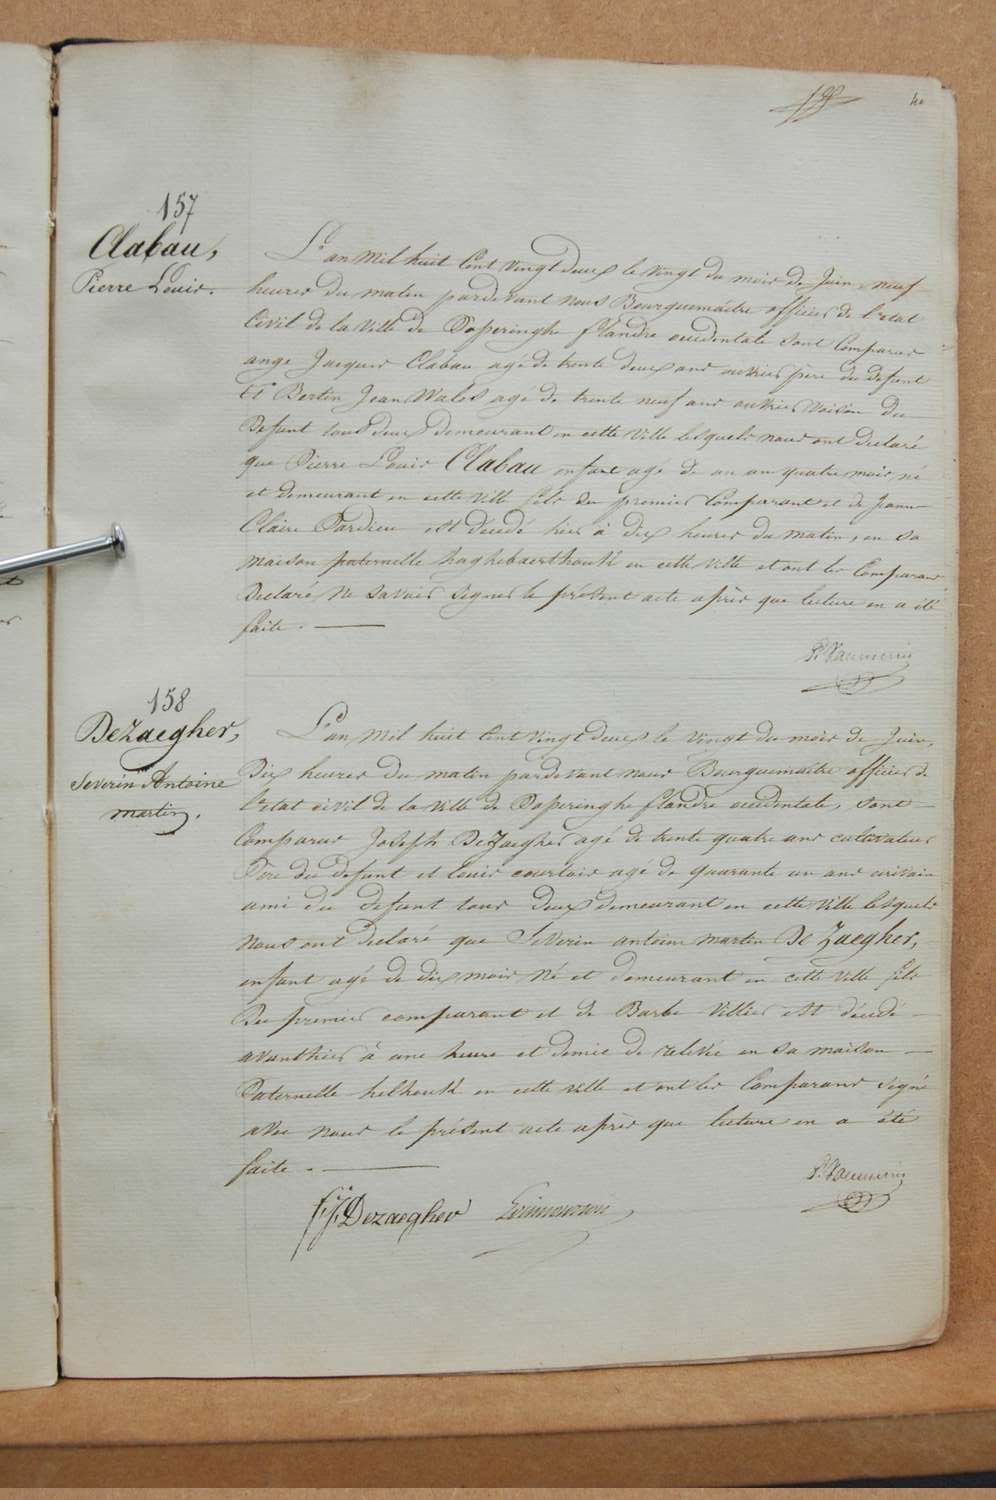 40
157
Clabau,
Pierre Louis.
L'an mil huit Cent vingt deux le vingt du mois de Juin, neuf
heures du matin pardevant nous Bourguemaitre officier de l'etat
Civil de la Ville de Poperinghe flandre occidentale sont Comparus
ange Jacques Clabau agé de trente deux ans ouvrier père du defunt
Et Bertin Jean Wales agé de trente neuf ans ouvrier voisin du
Defunt tous deux demeurant en cette Ville lesquels nous ont declaré
que Pierre Louis Clabau enfant agé de un an quatre mois né
et demeurant en cette ville fils du premier Comparant et de Jeanne
Claire Pardieu est décedé hier à dix heures du matin, en sa
maison paternelle haghebaerthouk en cette ville et ont les Comparans
Declaré Ne savoir signer le présent acte après que lecture en a été
faite.
158
DeZaegher,
Severin Antoine
martin.
L'an Mil huit Cent vingt deux le vingt du mois de Juin,
Dix heures du matin pardevant nous Bourguemaitre officier de
l'etat civil de la ville de Poperinghe flandre occidentale, sont
Comparus Joseph DeZaegher agé de trente quatre ans cultivateur
Père du defunt et louis agé de quarante un ans
ami du defunt tous deux demeurant en cette Ville lesquels
Nous ont declaré que Severin antoine martin De Zaegher,
enfant agé de dix mois Né et demeurant en cette Ville fils
Du premier comparant et de Barbe Villier est décedé
avanthier à une heure et demie de relevée en sa maison
Paternelle helhouk en cette ville et ont les Comparans signé
avec nous le présent acte après que lecture en a été
faite.
f.J. Dezaegher